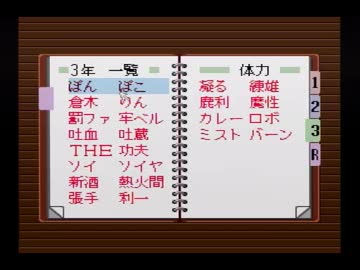 3年 一覧
ぽん ぽこ
倉木 りん
罰ファ 牢ベル
吐血 吐蔵
THE 功夫
ソイ ソイヤ
新酒 熱火間
張手 利一
体力
凝る 練雄
鹿利 魔性
カレー ロボ
ミスト バーン
1
2
3
R